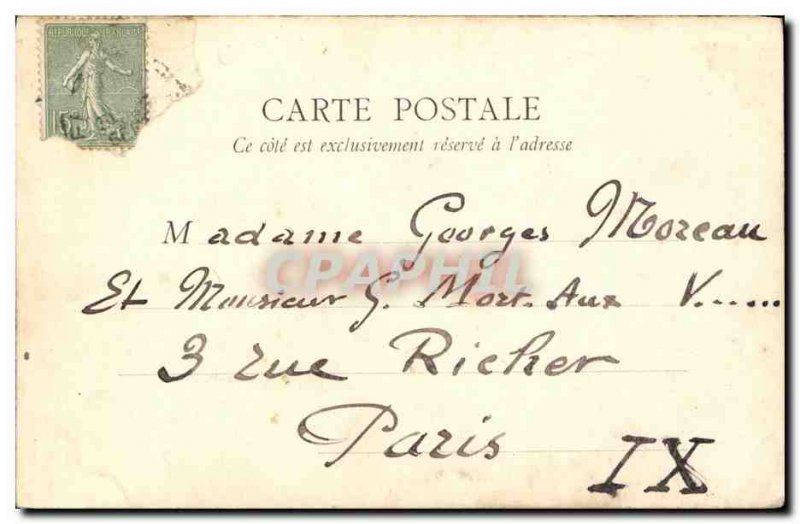 REPUBLIQUE FRANCAISE
15
CARTE POSTALE
Ce côté est exclusivement réservé à l'adresse
Madame Georges Moreau
CPAPHIL
Et Monsieur G. Mort. Aux V......
3 rue Richer
Paris
IX